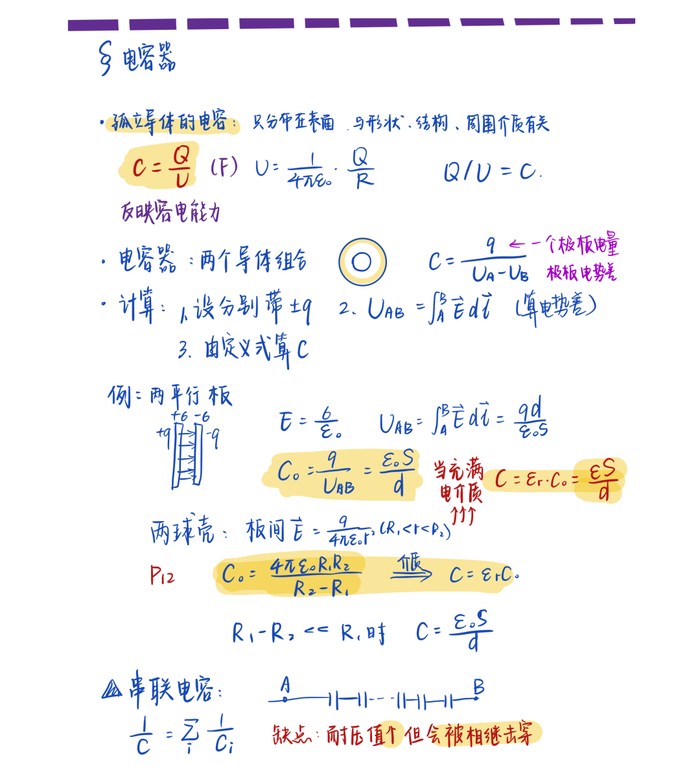 § 电容器
· 孤立导体的电容: 只分布在表面 与形状、结构、周围介质有关
C = Q/U (F) U = 1/4πε₀ · Q/R Q/U = C.
反映容电能力
· 电容器: 两个导体组合 C = q/(U_A - U_B) ← 一个极板电量
极板电势差
· 计算: 1、设分别带±q 2、U_AB = ∫_A^B E⃗ dl⃗ (算电势差)
3. 由定义式算C
例: 两平行板
+σ -σ
+q -q E = σ/ε₀ U_AB = ∫_A^B E⃗ dl⃗ = qd/ε₀S
C₀ = q/U_AB = ε₀S/d 当充满电介质 ↑↑↑ C = εr·C₀ = εS/d
两球壳: 板间 E⃗ = q/4πε₀r² (R₁<r<R₂)
P12 C₀ = 4πε₀R₁R₂/(R₂-R₁) 介质⇒ C = εrC₀
R₁-R₂ << R₁时 C = ε₀S/d
△ 串联电容: A B
1/C = Σ_i 1/C_i 缺点: 耐压值个 但会被相继击穿